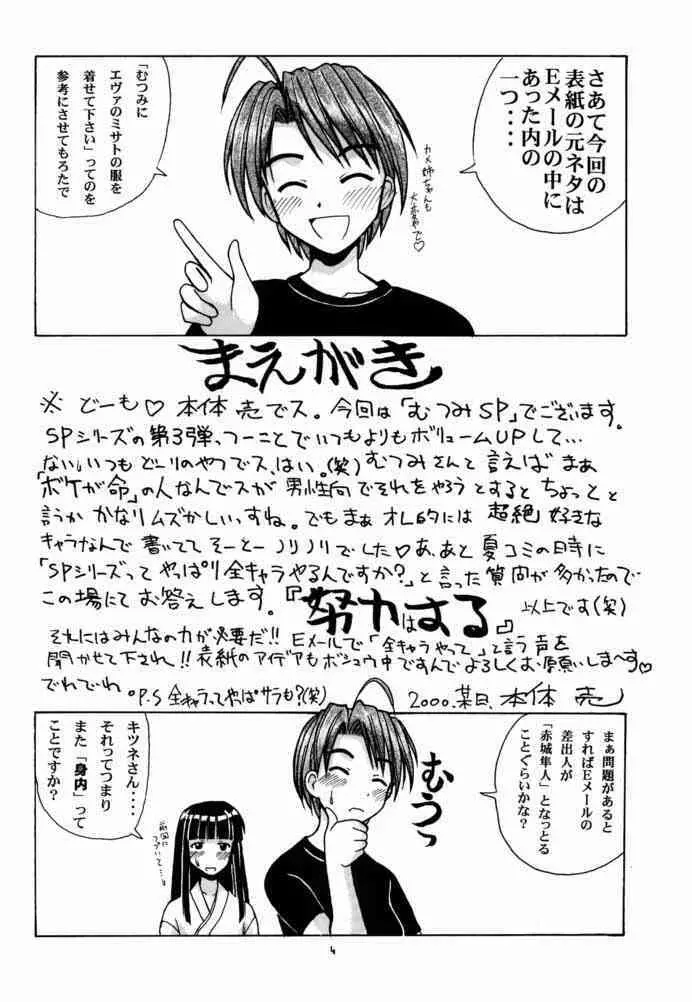 さあて今回の
表紙の元ネタは
Eメールの中に
あった内の
一つ・・・
カメ姉ちゃんも
大変やで♡
「むつみに
エヴァのミサトの服を
着せて下さい」ってのを
参考にさせてもろたで
まえがき
※ どーも♡ 本体 売でス。今回は「むつみSP」でございます。
SPシリーズの第3弾、つーことでいつもよりもボリュームUPして…
ない。いつもどーりのやつでス、はい。(笑) むつみさんと言えば まあ
「ボケが命」の人なんでスが 男性向でそれをやろうとすると ちょっと と
言うか かなりムズかしいっすね。でもまぁ オレ的には 超絶 好きな
キャラなんで 書いてて そーとー ノリノリでした♡ あ、あと 夏コミの日時に
「SPシリーズって やっぱり 全キャラやるんですか?」と言った質問が多かったので
この場にて お答えします。『努力はする』 以上です(笑)
それにはみんなの力が必要だ!! Eメールで「全キャラやって」と言う声を
聞かせて下され!! 表紙のアイデアもボシュウ中ですんでよろしくお願いしま〜す♡
でわでわ。P.S 全キャラってやっぱサラも?(笑) 2000.某日、本体 売
まぁ問題があると
すればEメールの
差出人が
「赤城隼人」となっとる
ことぐらいかな?
むうっ
キツネさん・・・・
それってつまり
また「身内」って
ことですか?
前回に
つづいて…
4